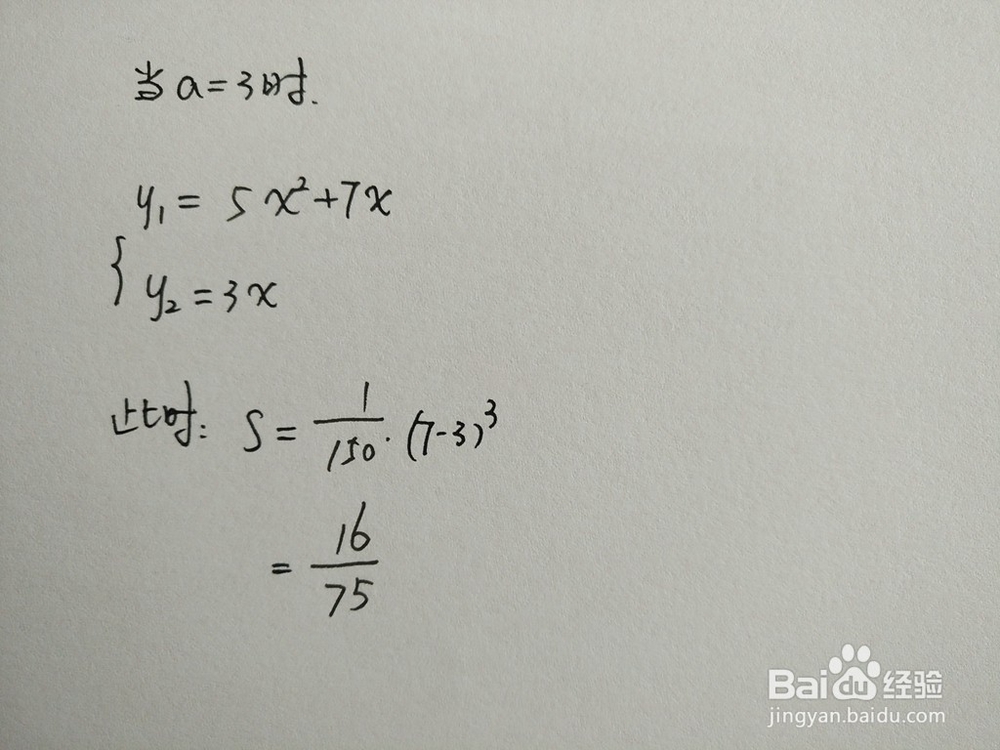 当a=3时.
y₁= 5x²+7x
{
y₂=3x
此时: S= 1/150·(7-3)³
= 16/75
Baidu经验
jingyan.baidu.com